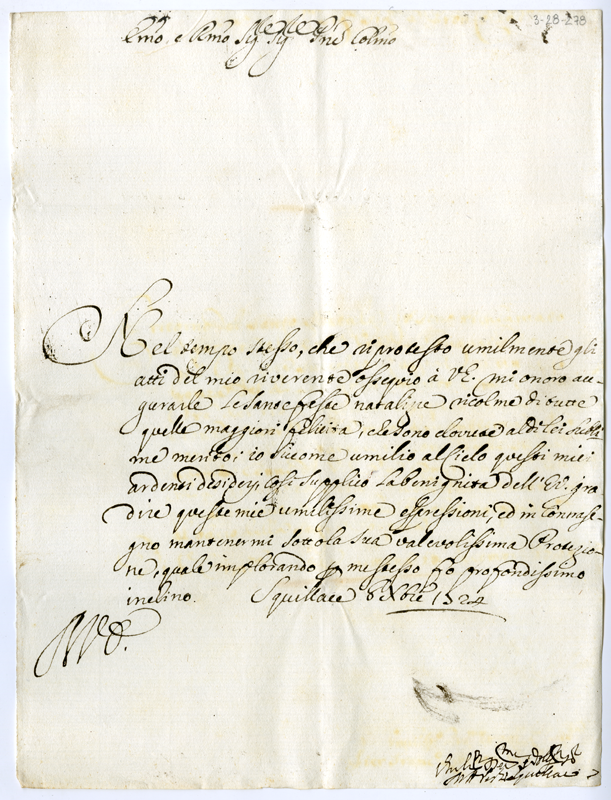 3-28-278
Emo, e Rmo Sig.r Sig.r Pne Colmo
Nel tempo stesso, che riprotesto umilmente gli
atti del mio riverente ossequio à V.E. mi onoro au-
gurarle le Sante feste natalizie ricolme di tutte
quelle maggiori felicità, che sono dovute al di lei subli
me merito; io siccome umilio al Cielo questi miei
ardenti desiderj, così supplico la benignità dell' E.V. gra
dire queste mie umilissime espressioni, ed in contrase-
gno mantenermi sotto la sua valevolissima Protezio-
ne, quale implorando per me stesso fò profondissimo
inchino. Squillace 8bre 1724